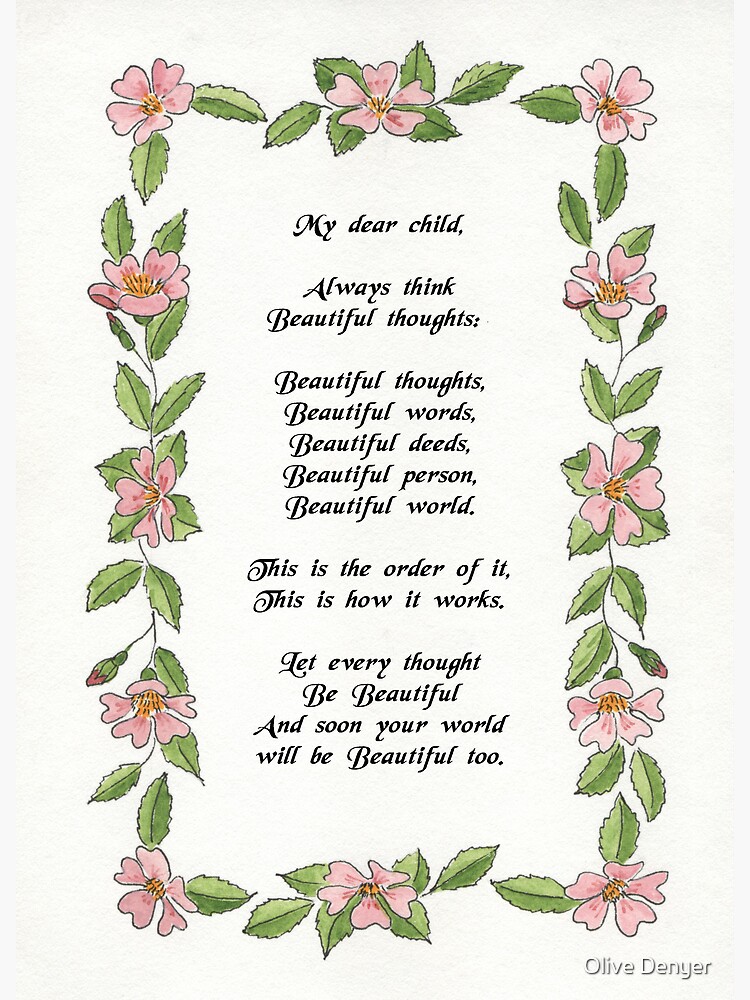 My dear child,
Always think
Beautiful thoughts:
Beautiful thoughts,
Beautiful words,
Beautiful deeds,
Beautiful person,
Beautiful world.
This is the order of it,
This is how it works.
Let every thought
Be Beautiful
And soon your world
will be Beautiful too.
Olive Denyer